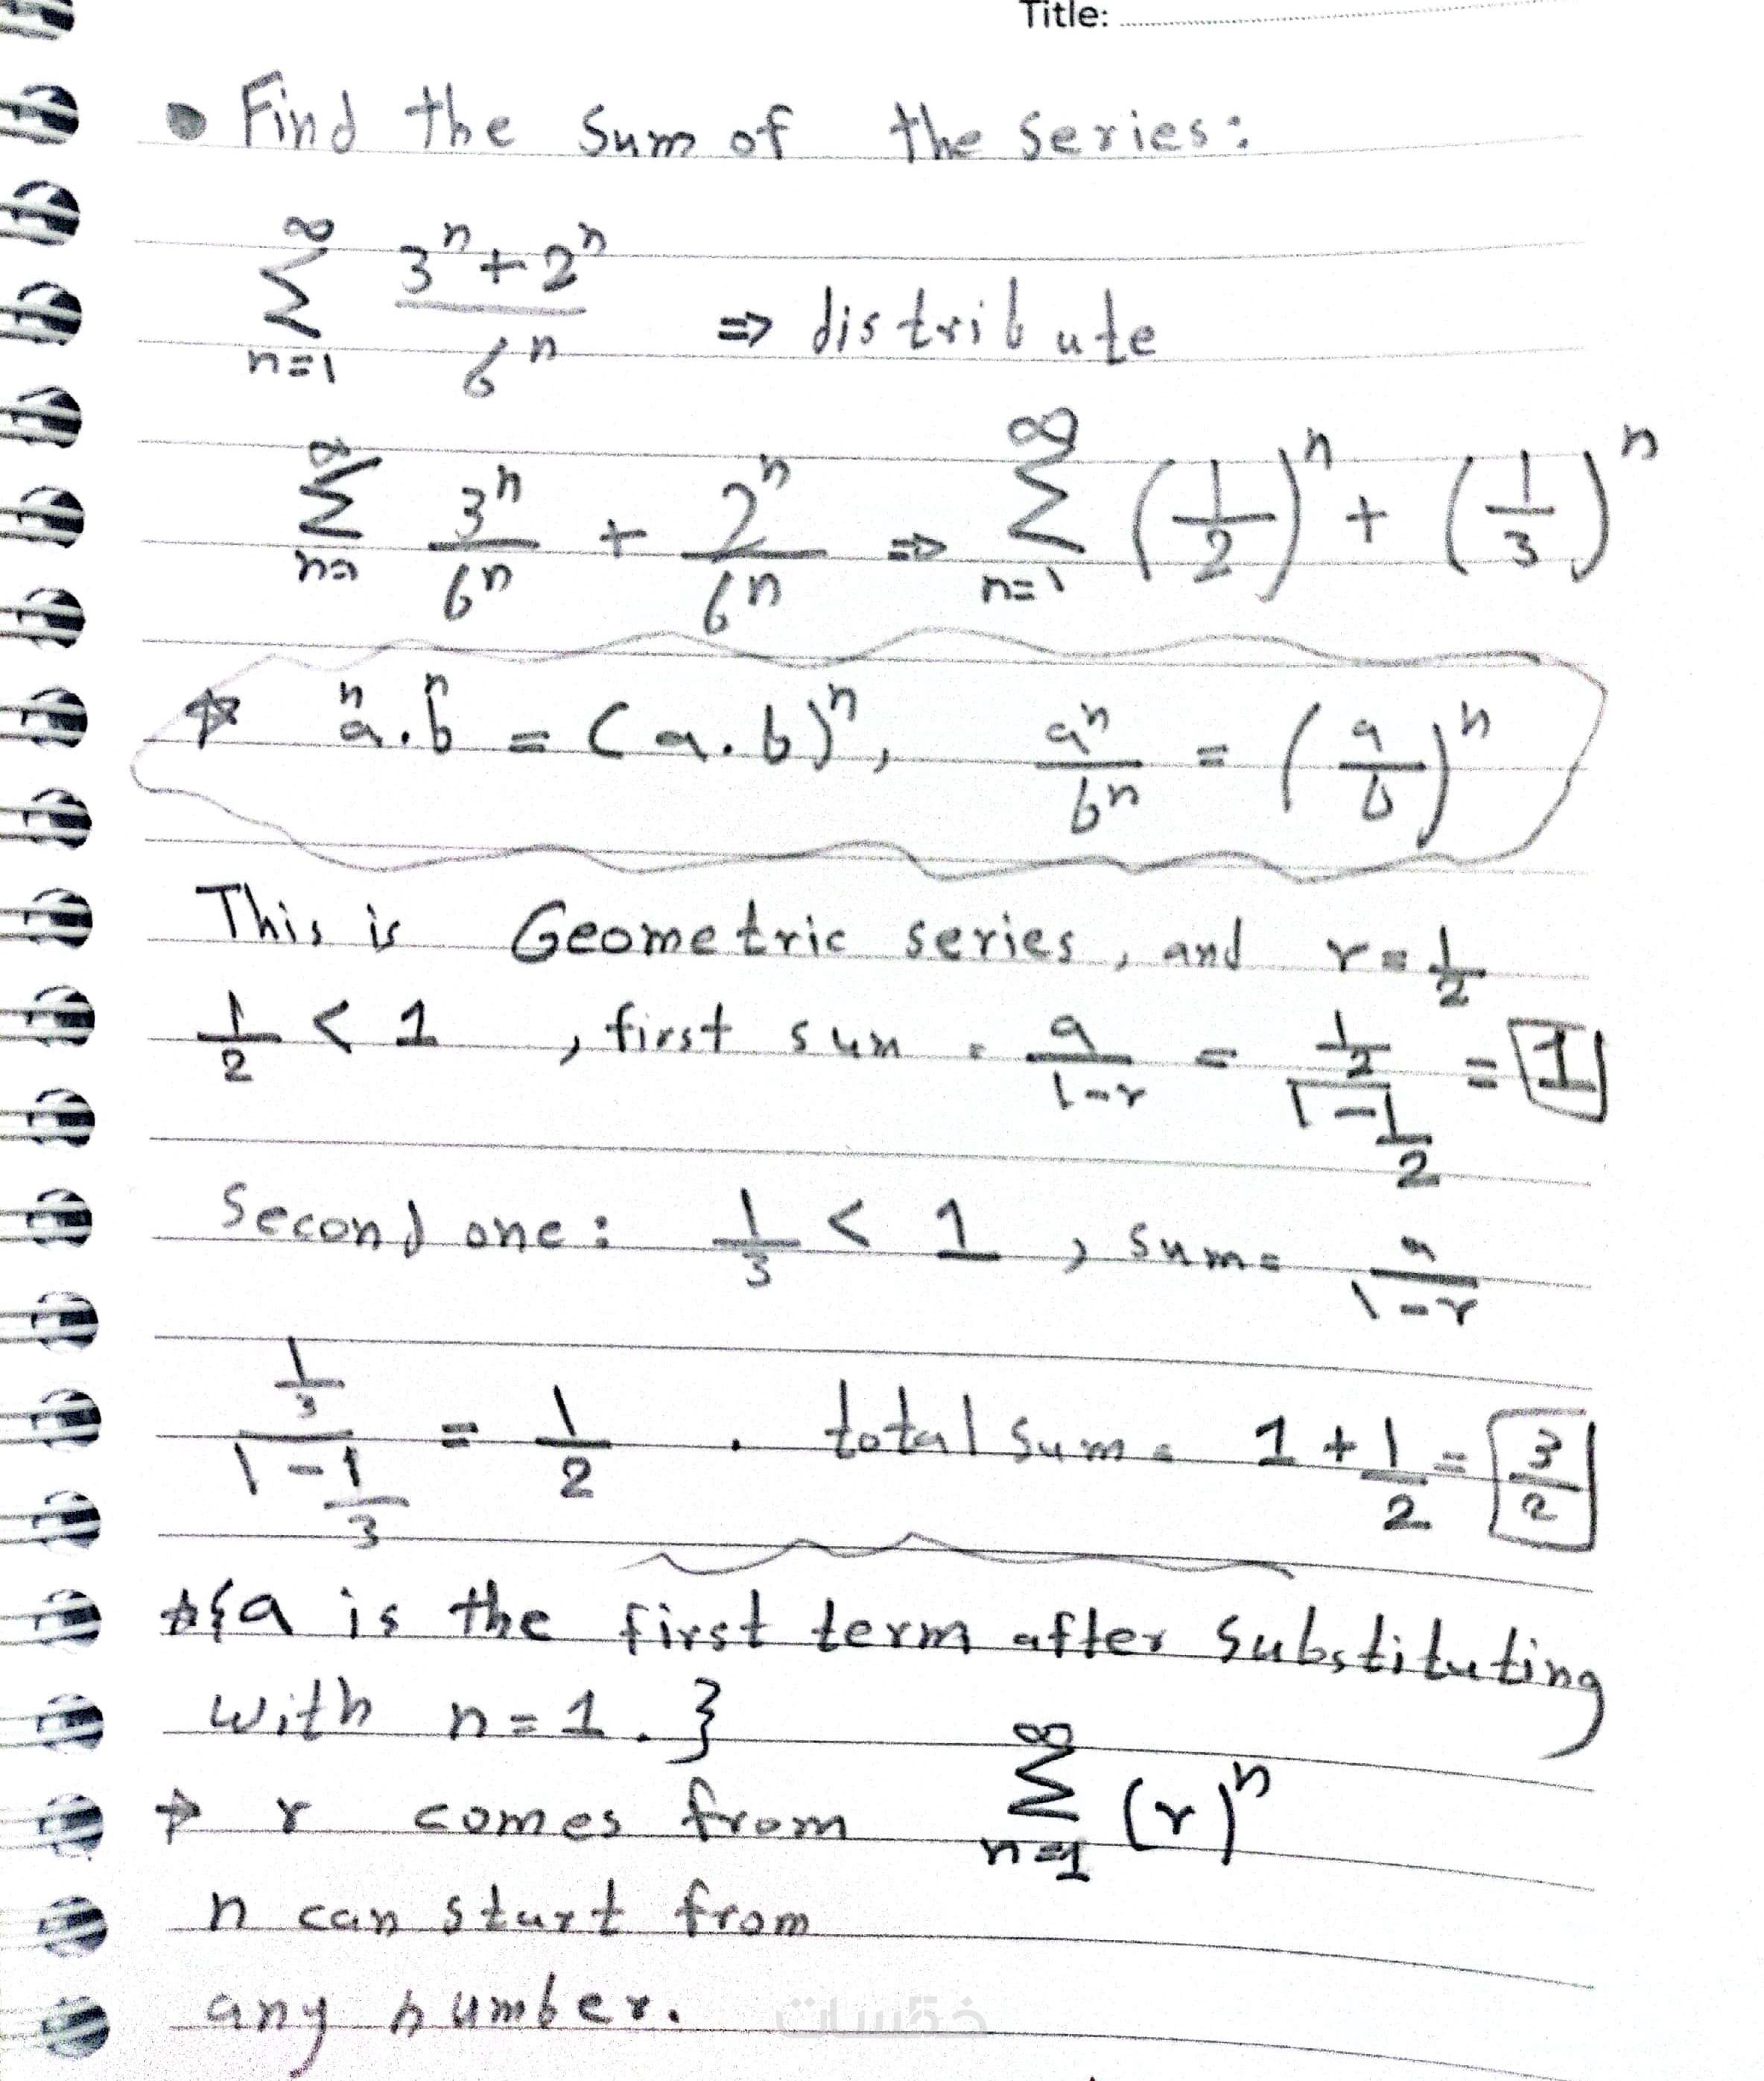 Title:
• Find the sum of the series:
∞ Σ n=1 (3ⁿ+2ⁿ)/6ⁿ ⇒ distribute
∞ Σ n= 3ⁿ/6ⁿ + 2ⁿ/6ⁿ ⇒ ∞ Σ n=1 (1/2)ⁿ + (1/3)ⁿ
☆ aⁿ.bⁿ = (a.b)ⁿ, aⁿ/bⁿ = (a/b)ⁿ
This is Geometric series, and r = 1/2
1/2 < 1 , first sum = a/(1-r) = (1/2)/(1-1/2) = 1
Second one: 1/3 < 1 , sum = a/(1-r)
(1/3)/(1-1/3) = 1/2 . total sum = 1 + 1/2 = 3/2
☆{a is the first term after substituting
with n=1.}
→ r comes from ∞ Σ n=1 (r)ⁿ
n can start from
any number.
خمسات